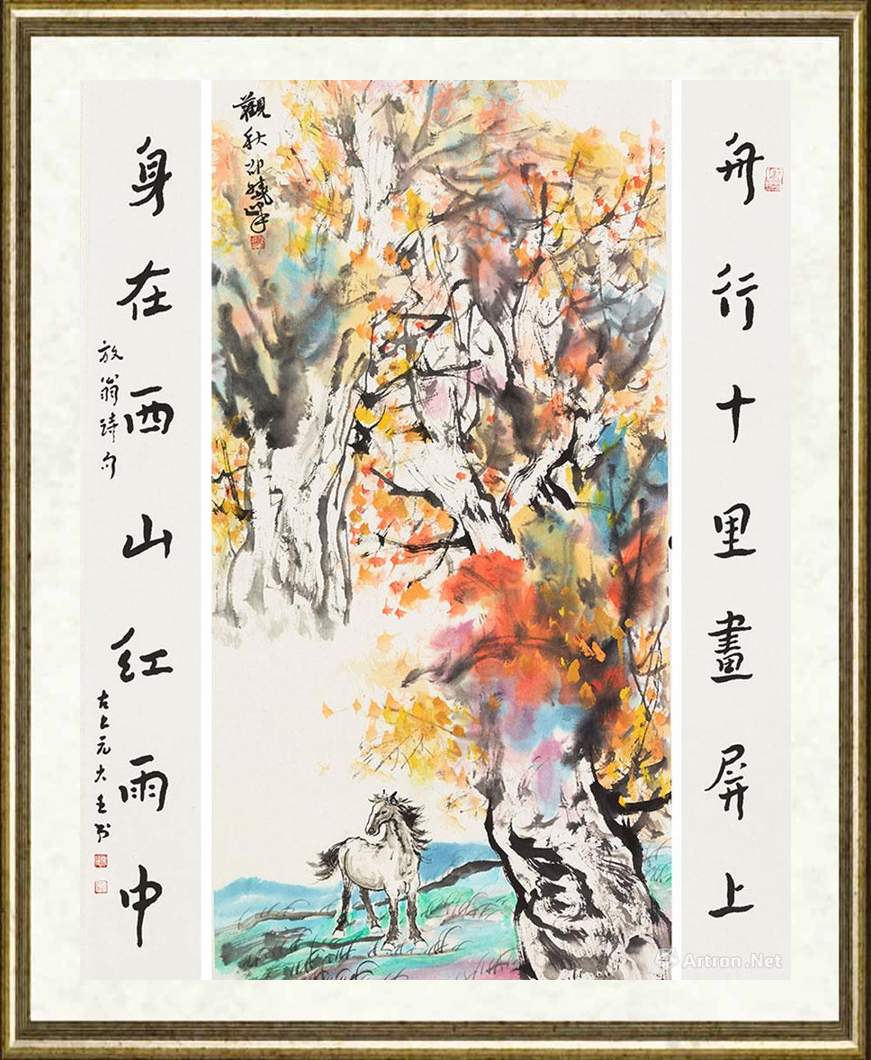 舟行十里畫屏上
觀秋 邵曉峯
身在西山红雨中
放翁詩句
古上元大
Artron.Net